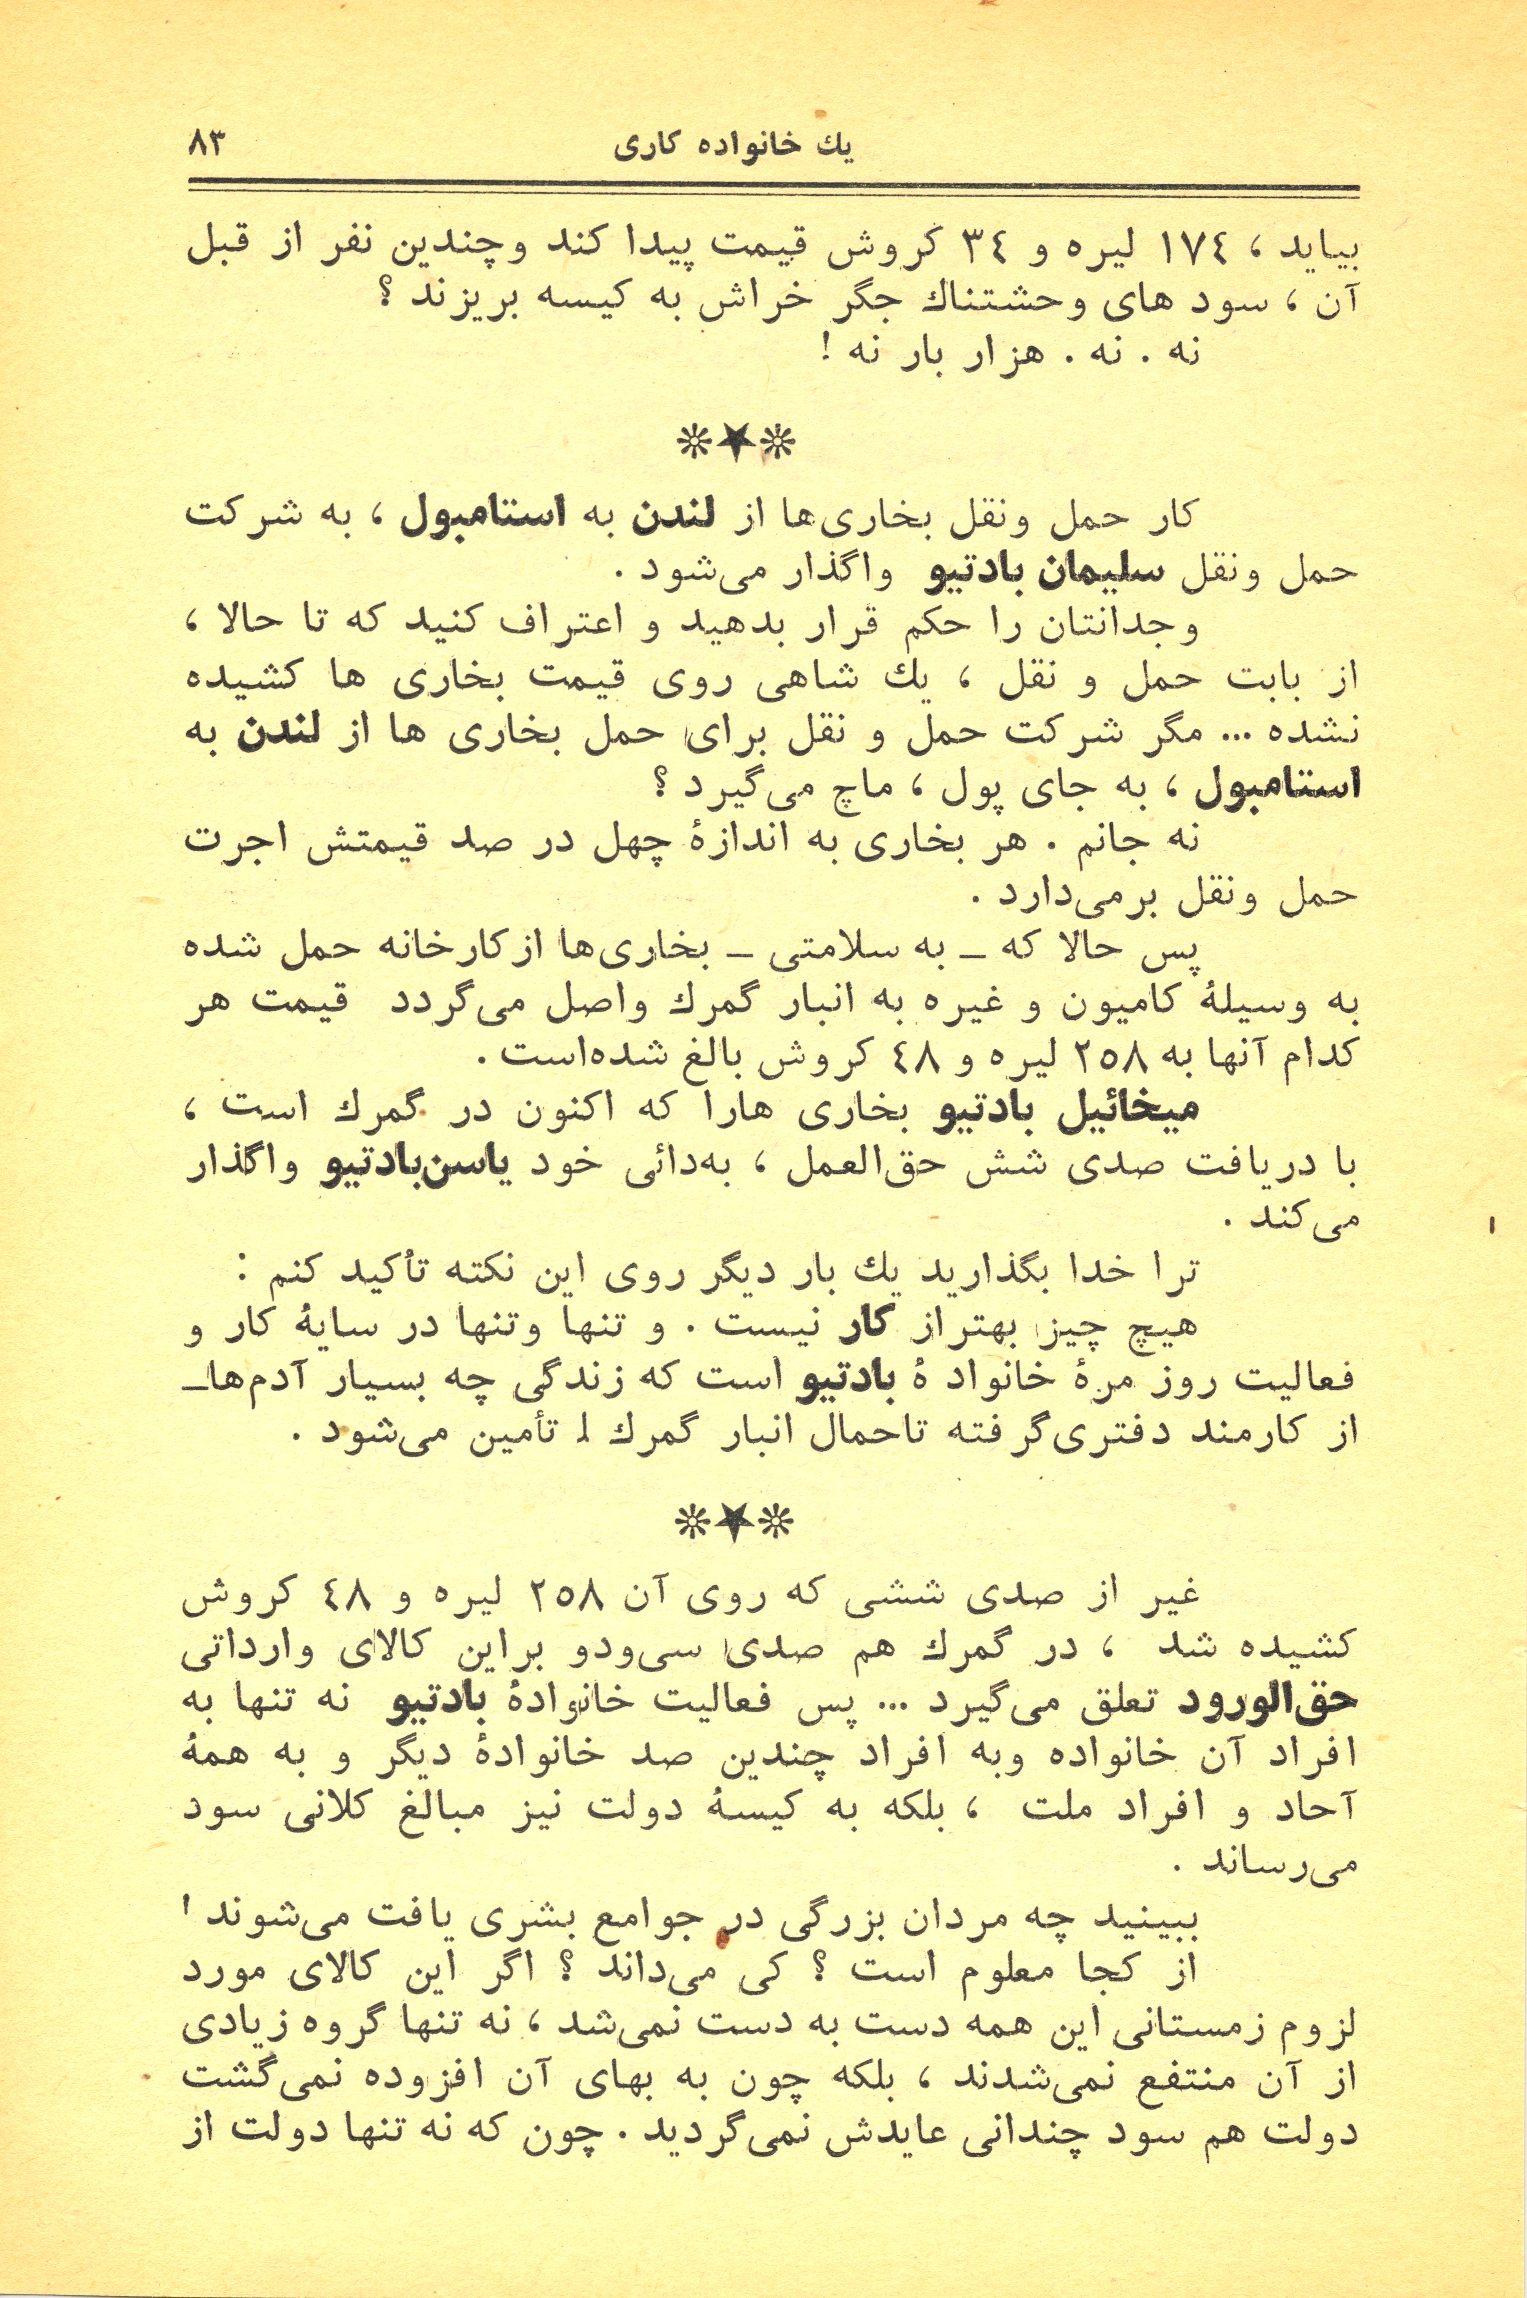 یك خانواده کاری ۸۳
بیاید ، ۱۷٤ لیره و ۳٤ کروش قیمت پیدا کند وچندین نفر از قبل
آن ، سود های وحشتناك جگر خراش به کیسه بریزند ؟
نه . نه . هزار بار نه !
کار حمل ونقل بخاری‌ها از لندن به استامبول ، به شرکت
حمل ونقل سلیمان بادتیو واگذار می‌شود .
وجدانتان را حکم قرار بدهید و اعتراف کنید که تا حالا ،
از بابت حمل و نقل ، یك شاهی روی قیمت بخاری ها کشیده
نشده ... مگر شرکت حمل و نقل برای حمل بخاری ها از لندن به
استامبول ، به جای پول ، ماچ می‌گیرد ؟
نه جانم . هر بخاری به اندازهٔ چهل در صد قیمتش اجرت
حمل ونقل برمی‌دارد .
پس حالا که ـ به سلامتی ـ بخاری‌ها ازکارخانه حمل شده
به وسیلهٔ کامیون و غیره به انبار گمرك واصل می‌گردد قیمت هر
کدام آنها به ۲٥۸ لیره و ٤۸ کروش بالغ شده‌است .
میخائیل بادتیو بخاری هارا که اکنون در گمرك است ،
با دریافت صدی شش حق‌العمل ، به‌دائی خود یاسن‌بادتیو واگذار
می‌کند .
ترا خدا بگذارید یك بار دیگر روی این نکته تأکید کنم :
هیچ چیز بهتراز کار نیست . و تنها وتنها در سایهٔ کار و
فعالیت روز مرهٔ خانواد هٔ بادتیو است که زندگی چه بسیار آدم‌ها‌ـ
از کارمند دفتری‌گرفته تاحمال انبار گمرك ـ تأمین می‌شود .
غیر از صدی ششی که روی آن ۲٥۸ لیره و ٤۸ کروش
کشیده شد ، در گمرك هم صدی سی‌ودو براین کالای وارداتی
حق‌الورود تعلق می‌گیرد ... پس فعالیت خانوادهٔ بادتیو نه تنها به
افراد آن خانواده وبه افراد چندین صد خانوادهٔ دیگر و به همهٔ
آحاد و افراد ملت ، بلکه به کیسهٔ دولت نیز مبالغ کلانی سود
می‌رساند .
ببینید چه مردان بزرگی در جوامع بشری یافت می‌شوند !
از کجا معلوم است ؟ کی می‌داند ؟ اگر این کالای مورد
لزوم زمستانی این همه دست به دست نمی‌شد ، نه تنها گروه زیادی
از آن منتفع نمی‌شدند ، بلکه چون به بهای آن افزوده نمی‌گشت
دولت هم سود چندانی عایدش نمی‌گردید . چون که نه تنها دولت از